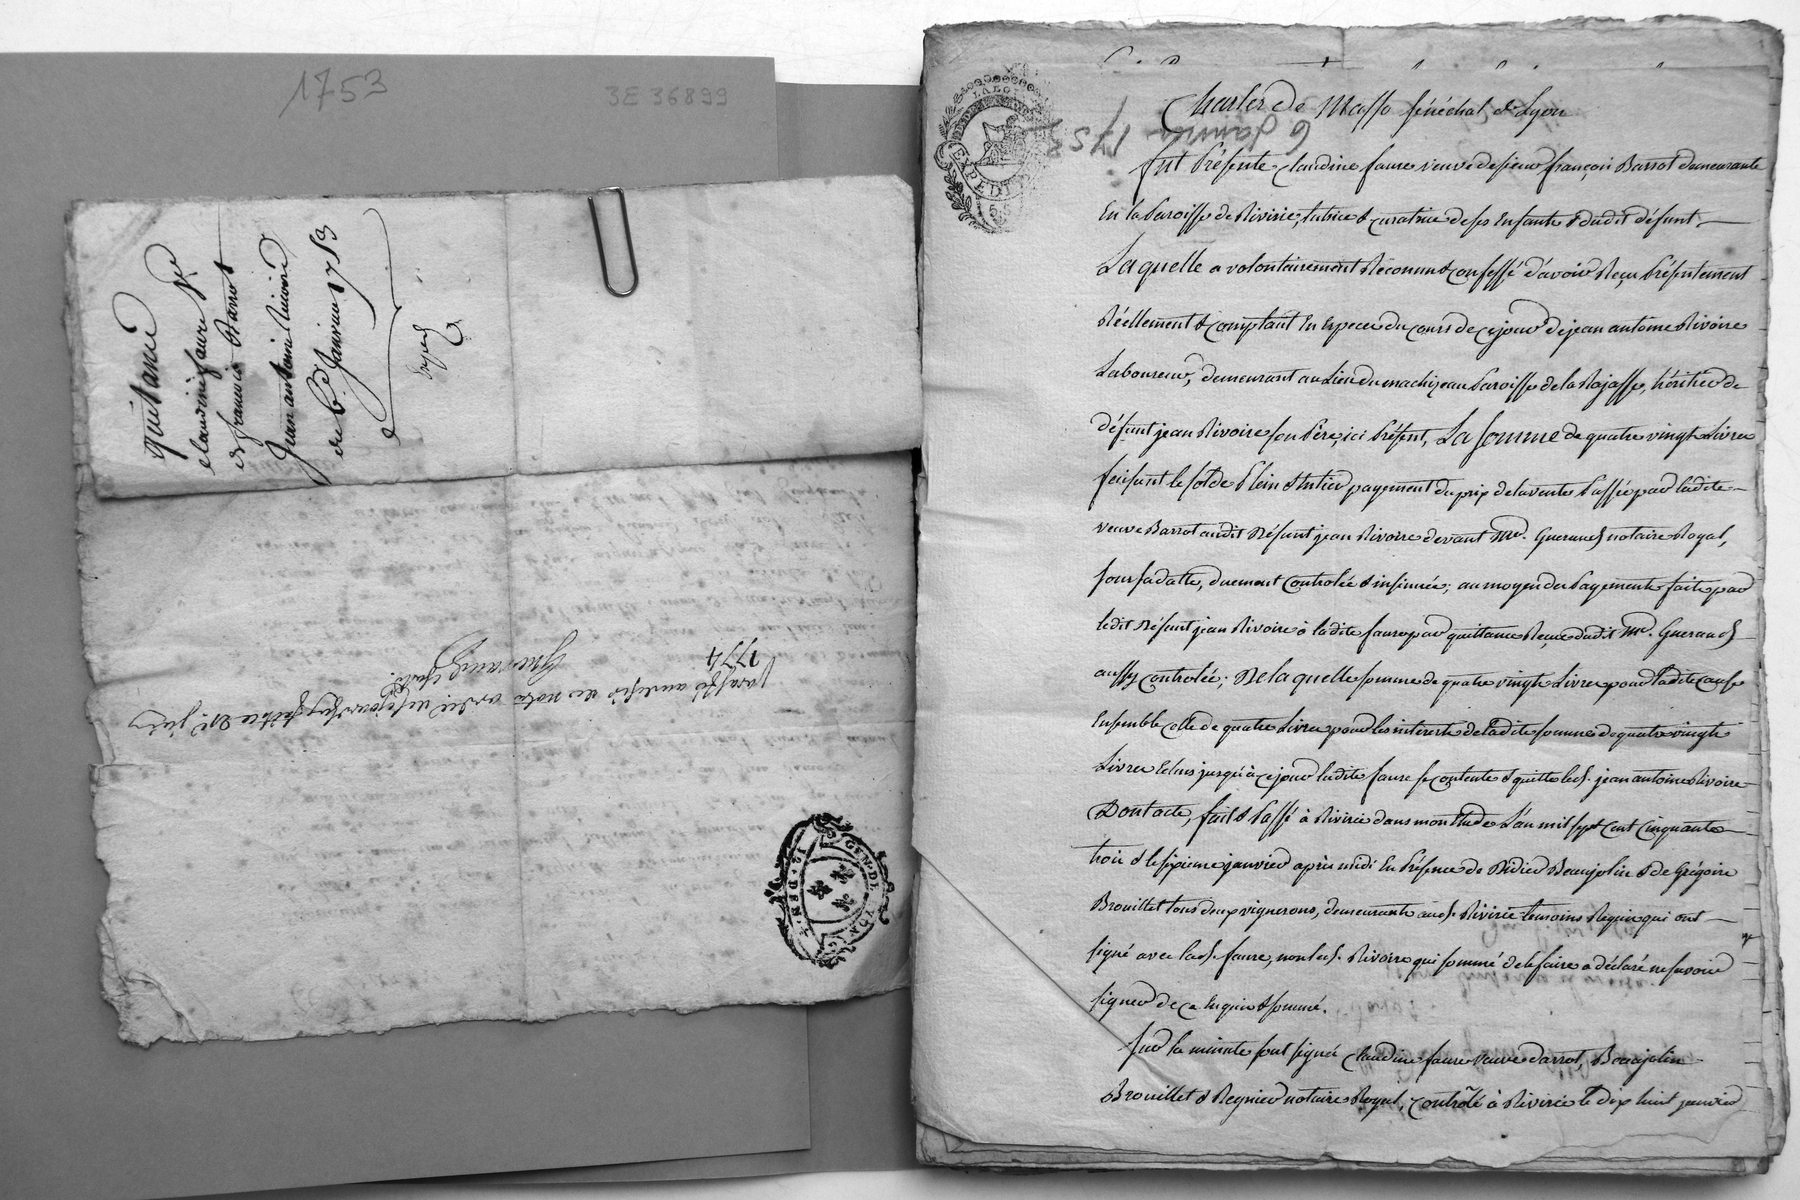 1753
3E 36899
quittance
claudine faure Vve
de françois Barrot
Jean antoine Rivoire
du 6e Janvier 1753
Exped
paraffé au desir de notre ordce de ce jourdhuy
1774
Gueraud
GEN. DE LYON
12. DEN.
LA LOI
EXPEDIT
6 Janvier 1753
Charles de Masso sénéchal de Lyon
fut Présente Claudine faure veuve de sieur françois Barrot demeurante
En la Paroisse de Riviric, tutrice & curatrice de ses Enfants & dudit défunt
Laquelle a volontairement Reconnu & confessé d'avoir Reçu Présentement
Réellement & comptant En Espèces du cours de ce jour de jean antoine Rivoire
Laboureur, demeurant au Lieu du machizeau Paroisse de la Rajasse, héritier de
défunt jean Rivoire son Père, ici Présent, La somme de quatre vingt Livres
faisant le solde Plein & Entier payement du prix de la vente Passée par ladite
veuve Barrot audit Défunt jean Rivoire devant Me. Gueraud notaire Royal,
sous sa datte, duement Controlée & insinuée; au moyen des Payements faits par
ledit Défunt jean Rivoire à ladite faure par quittance Reçue dudit Me. Gueraud
aussy controlée; De laquelle somme de quatre vingt Livres pour ladite cause
Ensemble celle de quatre Livres pour les intérests de ladite somme de quatre vingt
Livres Echus jusqu'à ce jour ladite faure se contente & quitte led. jean antoine Rivoire
Dont acte, fait & Passé à Riviric dans mon Etude L'an mil sept cent cinquante
trois & le sixieme janvier après midi En Présence de Didier Beaujolin & de Grégoire
Brouillet tous deux vignerons, demeurants aud. Riviric temoins Requis qui ont
signé avec lad. faure, non led. Rivoire qui sommé de le faire a déclaré ne savoir
signer de ce Enquis & sommé.
Sur la minute sont signés Claudine faure veuve Barrot, Beaujolin
Brouillet & Regnier notaire Royal, controlé à Riviric le dix huit janvier